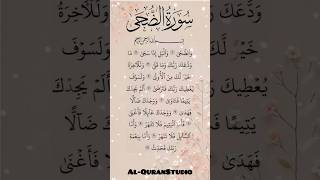 سُورَةُ الضُّحَىٰ
بِسْمِ اللَّهِ الرَّحْمَٰنِ الرَّحِيمِ
وَالضُّحَىٰ ۝ وَالَّيْلِ إِذَا سَجَىٰ ۝ مَا
وَدَّعَكَ رَبُّكَ وَمَا قَلَىٰ ۝ وَلَلْآخِرَةُ
خَيْرٌ لَّكَ مِنَ الْأُولَىٰ ۝ وَلَسَوْفَ
يُعْطِيكَ رَبُّكَ فَتَرْضَىٰ ۝ أَلَمْ يَجِدْكَ
يَتِيمًا فَآوَىٰ ۝ وَوَجَدَكَ ضَآلًّا
فَهَدَىٰ ۝ وَوَجَدَكَ عَآئِلًا فَأَغْنَىٰ
۝ فَأَمَّا الْيَتِيمَ فَلَا تَقْهَرْ ۝ وَأَمَّا
السَّآئِلَ فَلَا تَنْهَرْ ۝ وَأَمَّا بِنِعْمَةِ
رَبِّكَ فَحَدِّثْ ۝
AL-QURANSTUDIO